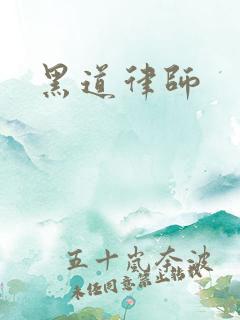 黑道律師
五十嵐奈波
未經同意禁止轉載